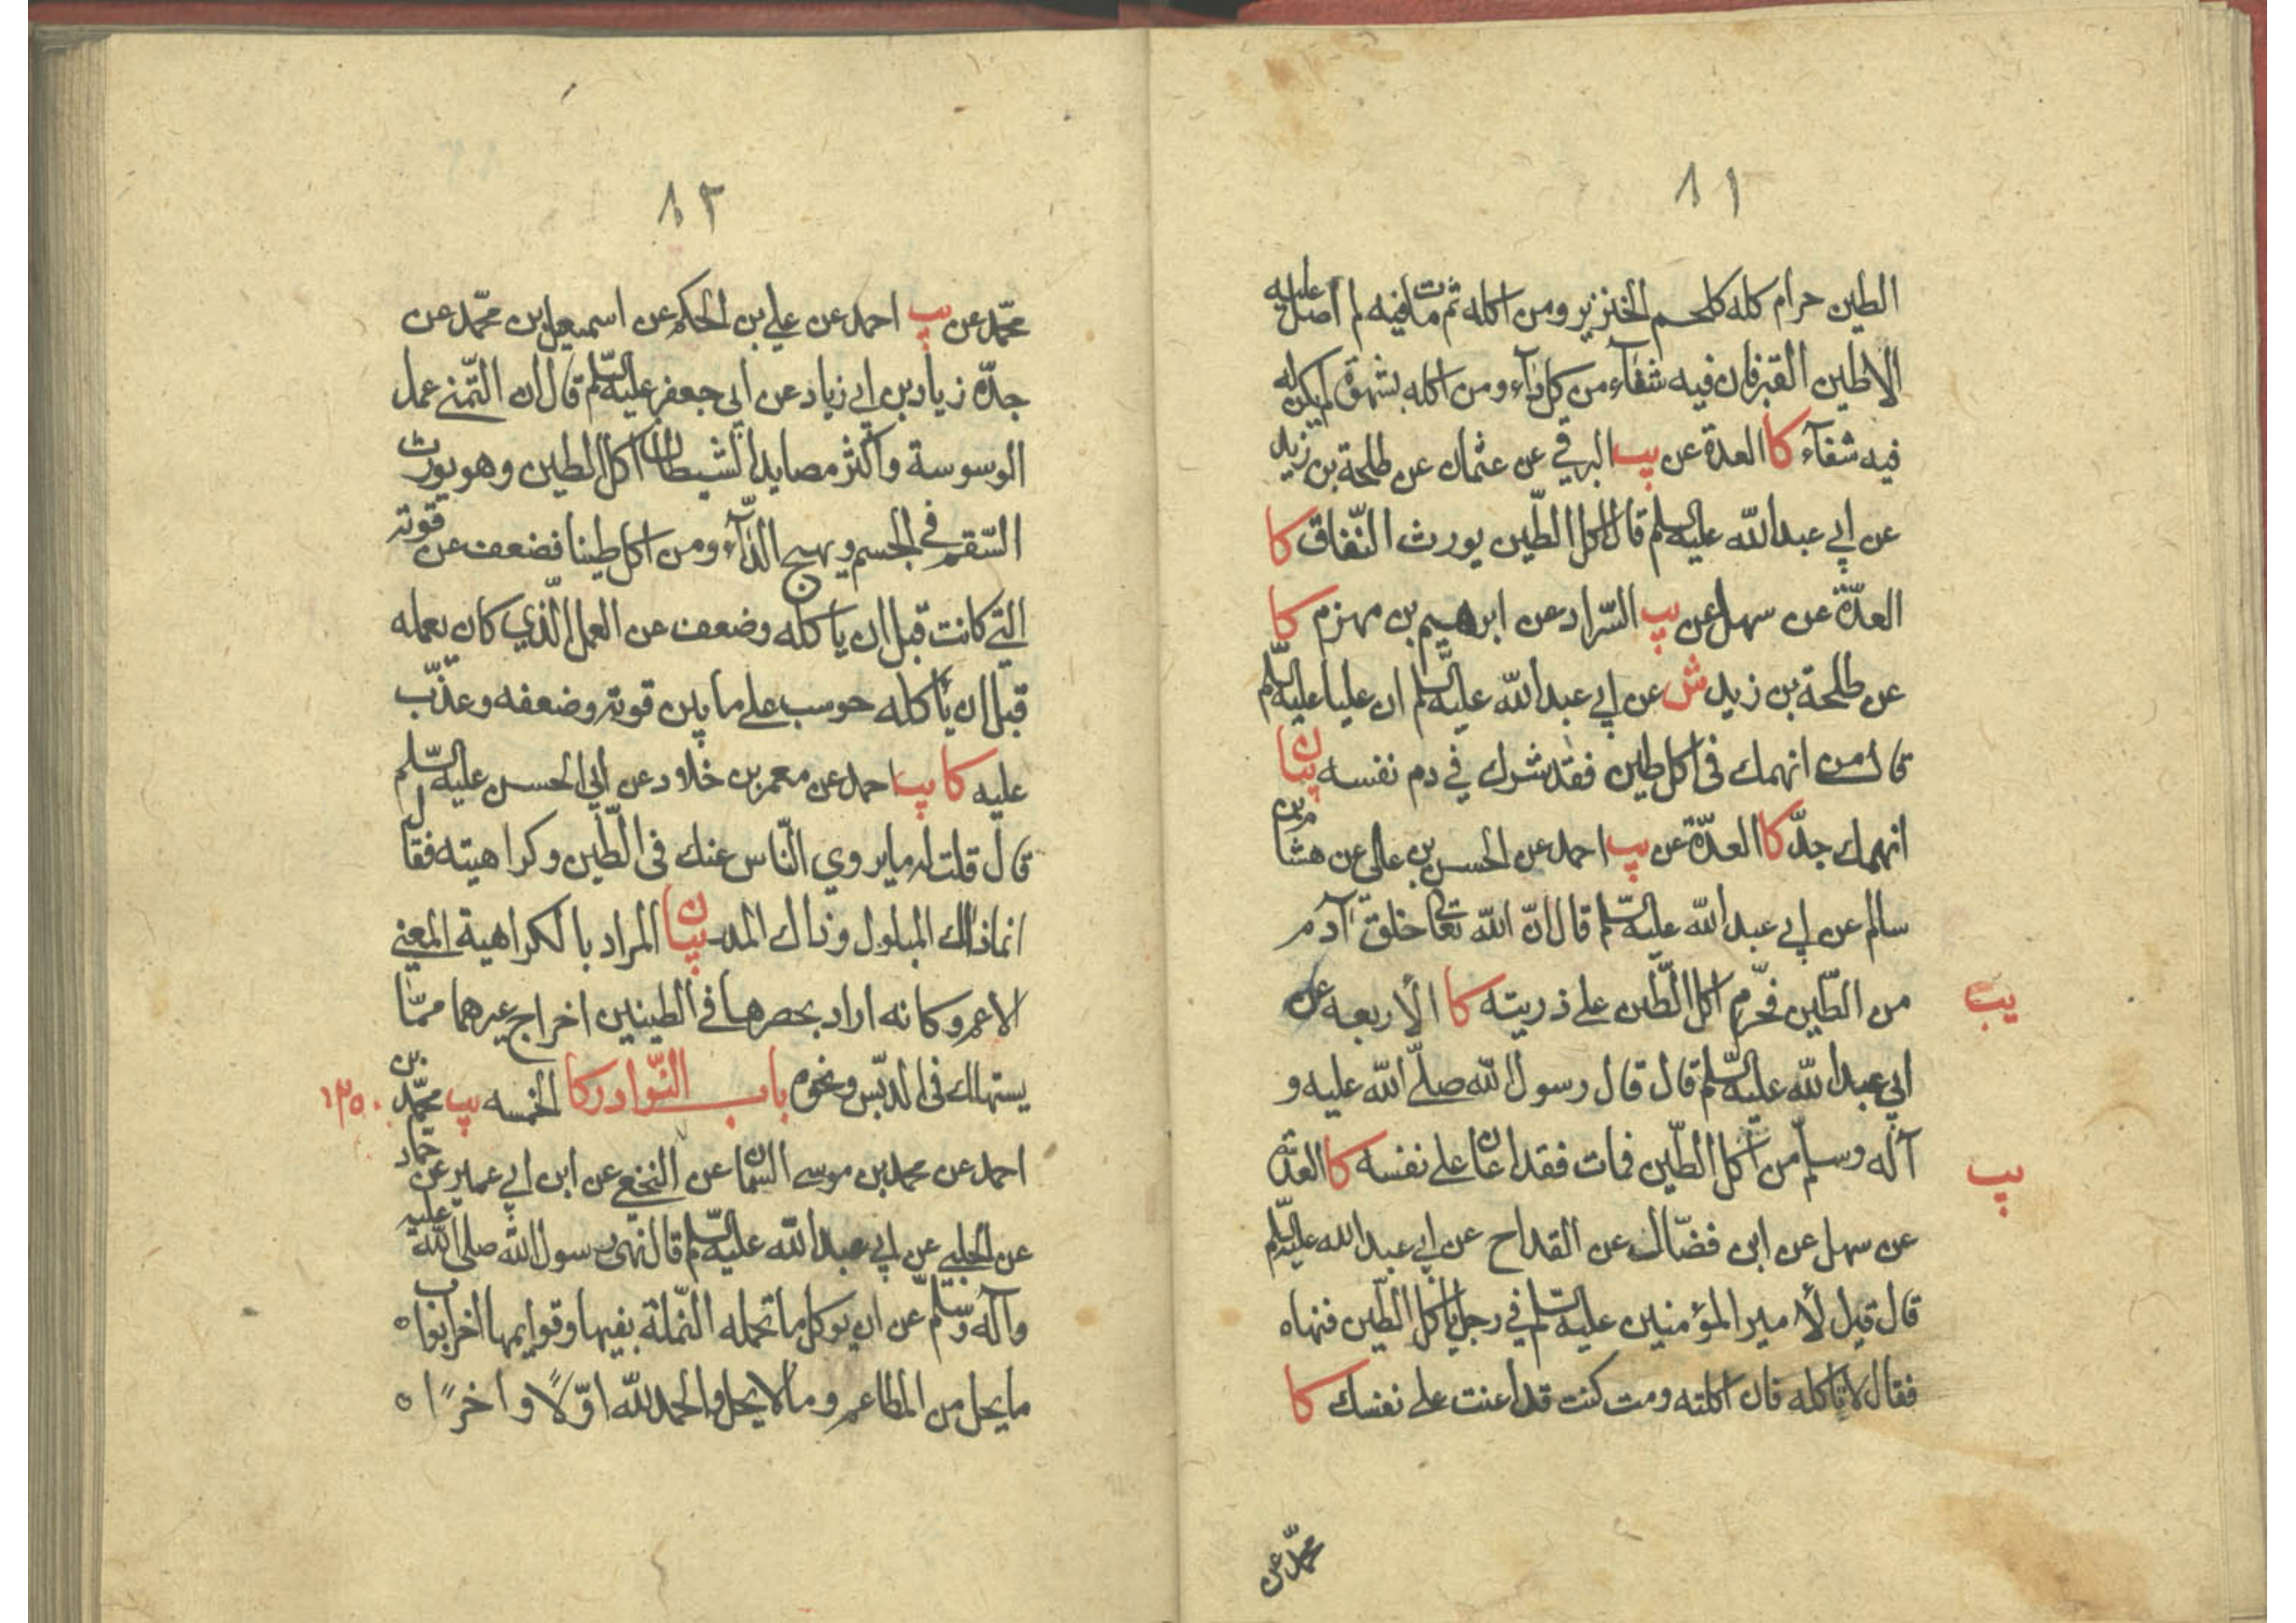 ٨١
الطين حرام كله كلحم الخنزير ومن اكله ثم مات فيه لم اصل عليه
الا طين القبر فان فيه شفآء من كل دآء ومن اكله بشهوة لم يكن له
فيه شفآء كا العدة عن يب البرقي عن عثمان عن طلحة بن زيد
عن ابي عبد الله عليه السلم قال اكل الطين يورث النّفاق كا
العدّة عن سهل عن يب السّراد عن ابرهيم بن مهزم كا
عن طلحة بن زيد ش عن ابي عبد الله عليه السّلم ان عليا عليه السّلم
قال من انهمك في اكل طين فقد شرك في دم نفسه بيان
انهمك جدّ كا العدّة عن يب احمد عن الحسن بن علي عن هشام بن
سالم عن ابي عبد الله عليه السّلم قال انّ الله تعالى خلق آدم
من الطّين فحرّم اكل الطّين على ذريته كا الأربعه عن
يب
ابي عبد الله عليه السّلم قال قال رسول الله صلّى الله عليه و
آله وسلّم من اكل الطّين فمات فقد اعان على نفسه كا العدّة
يب
عن سهل عن ابن فضّال عن القداح عن ابي عبد الله عليه السّلم
قال قيل لأمير المؤمنين عليه السّلم في رجل ياكل الطّين فنهاه
فقال لا تاكله فان اكلته ومت كنت قد اعنت على نفسك كا
محمّد عن
٨٢
محمّد عن يب احمد عن علي بن الحكم عن اسمعيل بن محمّد عن
جدّه زياد بن ابي زياد عن ابي جعفر عليه السّلم قال ان التّمني عمل
الوسوسة واكثر مصايد الشيطان اكل الطين وهو يورث
السّقم في الجسم ويهيج الدّآء ومن اكل طينا فضعف عن قوته
التي كانت قبل ان ياكله وضعف عن العمل الّذي كان يعمله
قبل ان ياكله حوسب على ما بين قوته وضعفه وعذّب
عليه كا يب احمد عن معمر بن خلاد عن ابي الحسن عليه السّلم
قال قلت له ما يروي النّاس عنك في الطّين وكراهيته فقال
انما ذاك المبلول وذاك المدر بيان المراد بالكراهية المعني
الاعم وكانه اراد بحصرها في الطينين اخراج غيرهما ممّا
يستهلك في الدبّس ونحوه باب النّوادر كا الخمسه يب محمّد بن
١٢٥٠
احمد عن محمد بن موسى السمان عن النخعي عن ابن ابي عمير عن حماد
عن الحلبي عن ابي عبد الله عليه السّلم قال نهى رسول الله صلى الله عليه
وآله وسّلم عن ان يوكل ما تحمله النّملة بفيها وقوايمها اخر ابواب
ما يحل من المطاعم وما لا يحل والحمد لله اوّلًا واخرًا